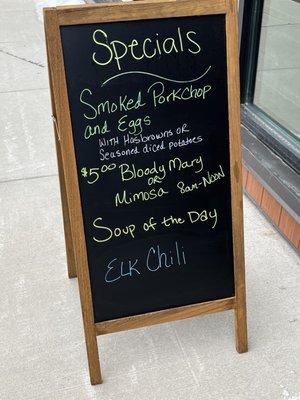 Specials
Smoked PorkChop
and Eggs
with Hasbrowns or
Seasoned diced potatoes
$5.00 Bloody Mary
or
Mimosa 8am-Noon
Soup of the Day
Elk Chili